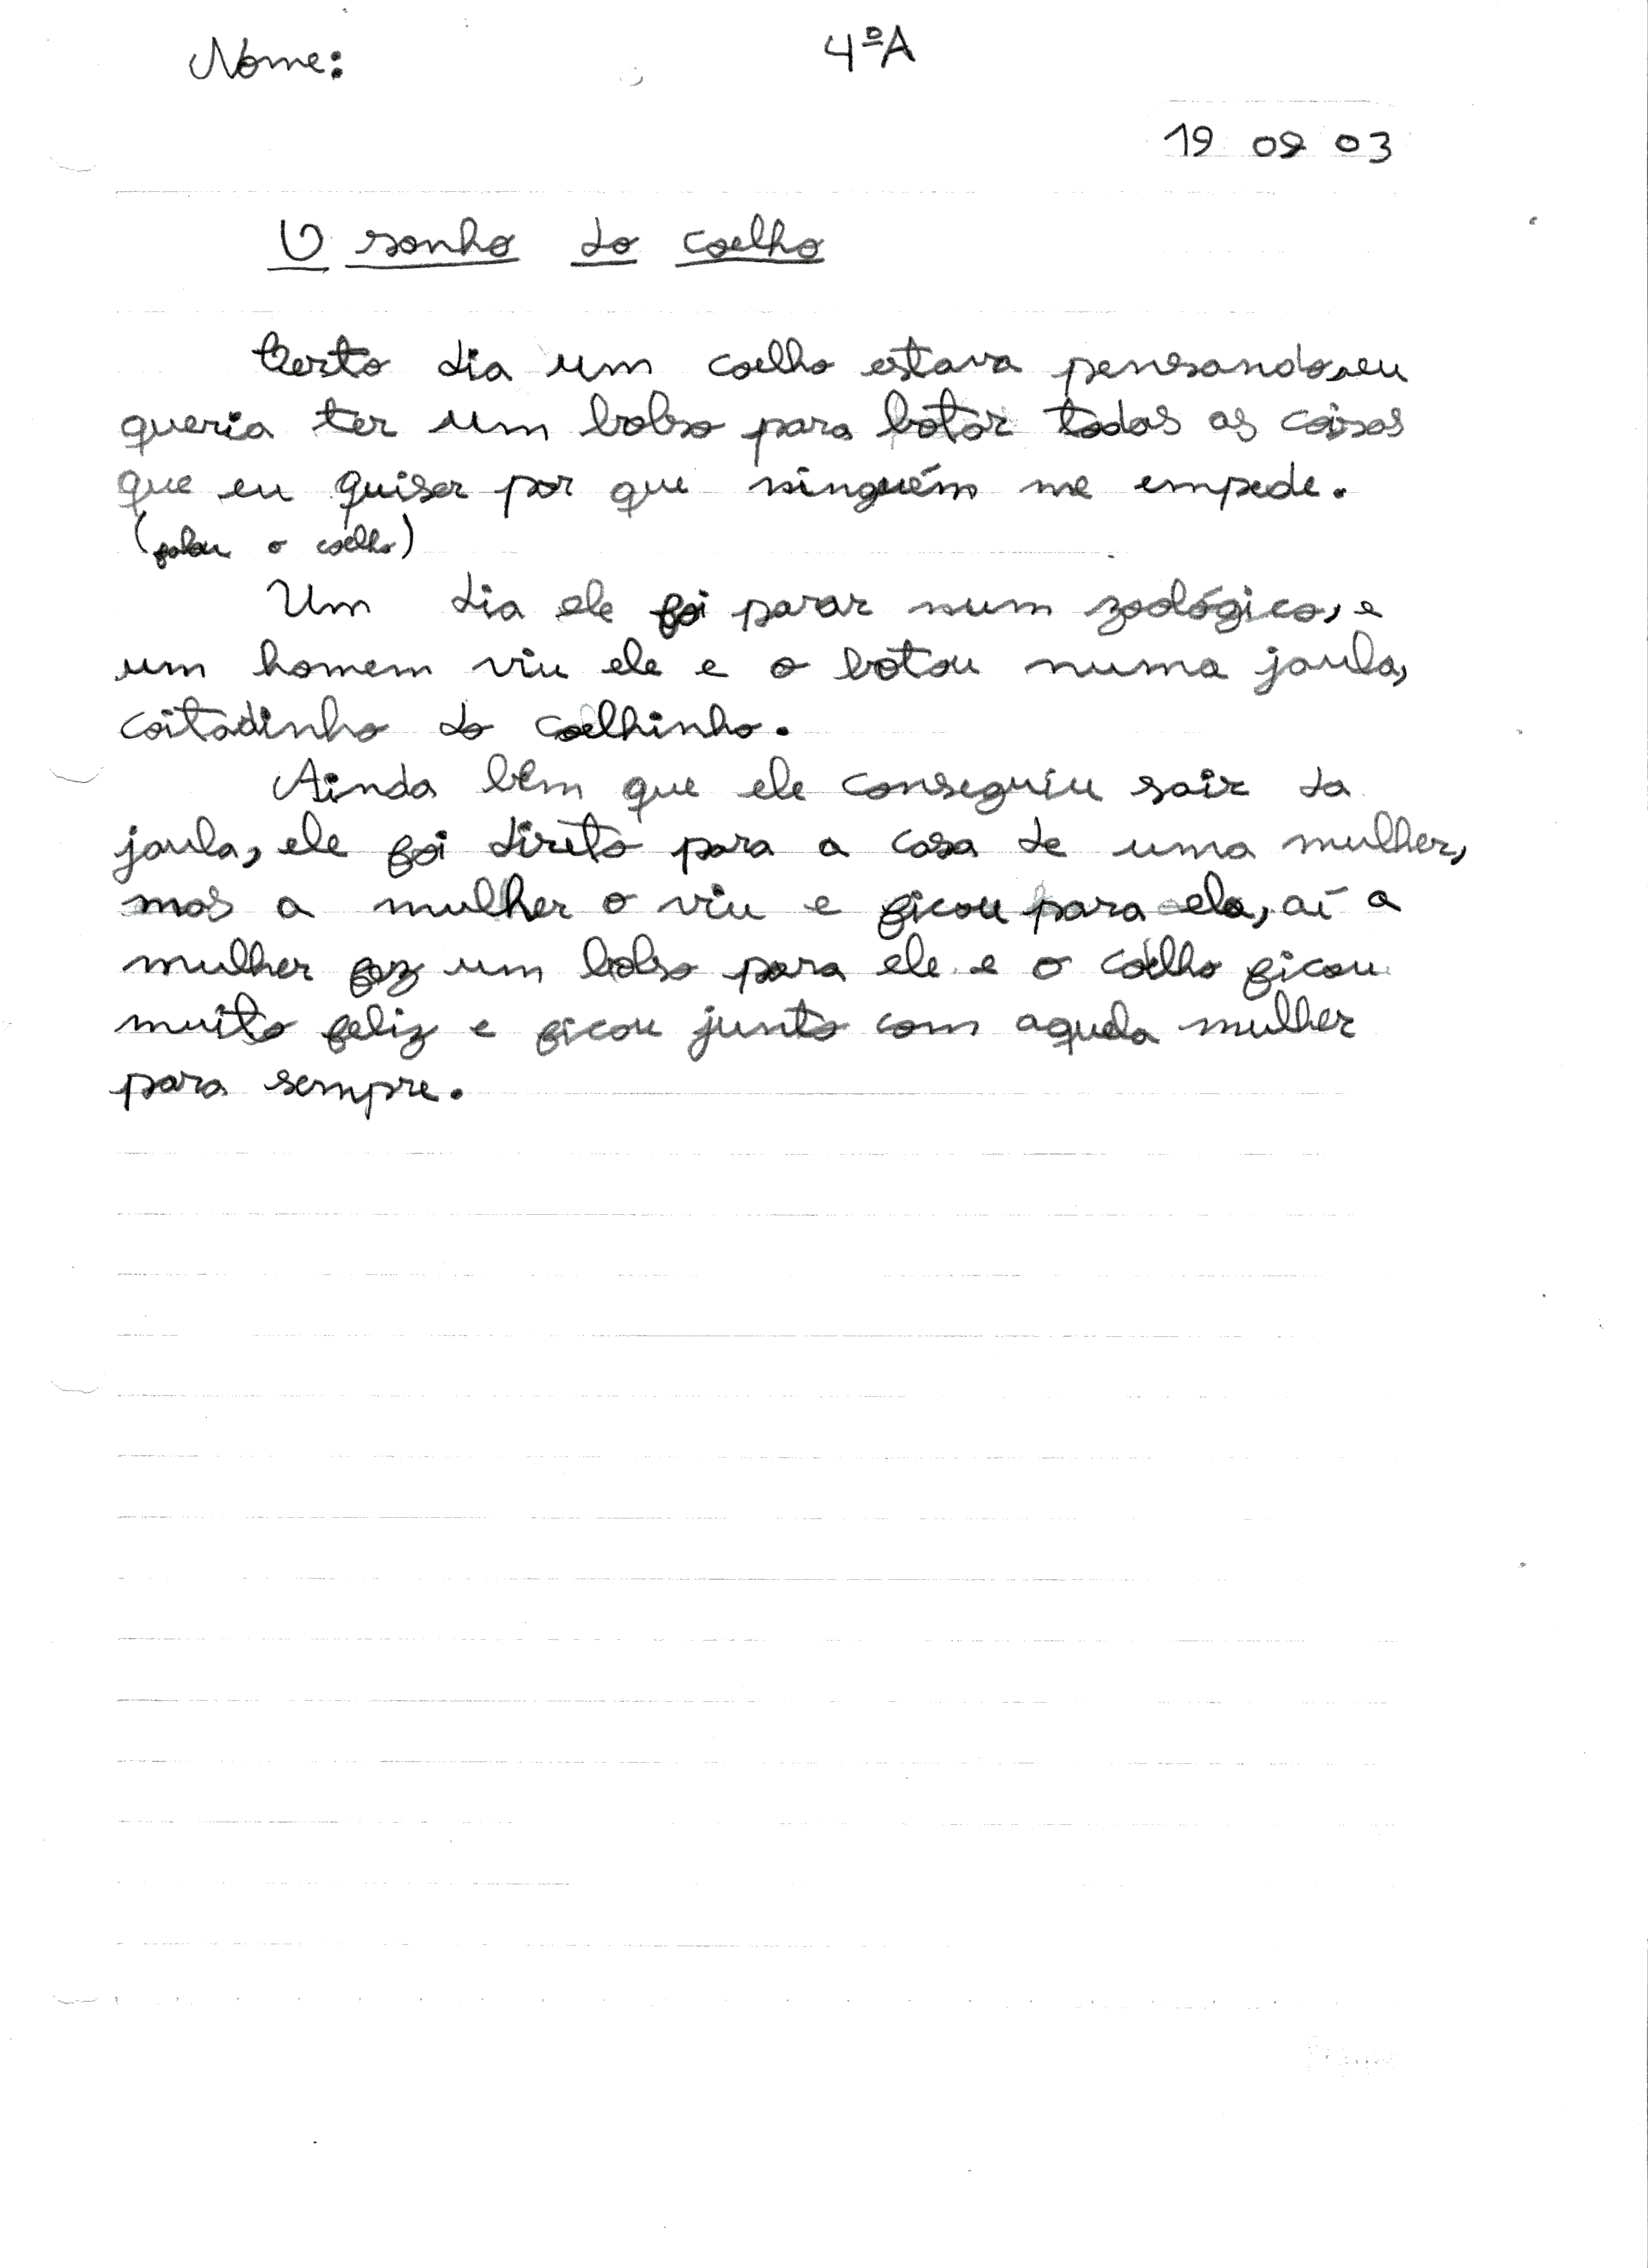 Nome: 4ºA
19 09 03
O sonho do coelho
Certo dia um coelho estava pensando, eu
queria ter um bolso para botar todas as coisas
que eu quiser por que ninguém me empede.
(falou o coelho)
Um dia ele foi parar num zoológico, e
um homem viu ele e o botou numa jaula,
coitadinho do coelhinho.
Ainda bem que ele conseguiu sair da
jaula, ele foi direto para a casa de uma mulher,
mas a mulher o viu e ficou para ela, aí a
mulher fez um bolso para ele e o coelho ficou
muito feliz e ficou junto com aquela mulher
para sempre.